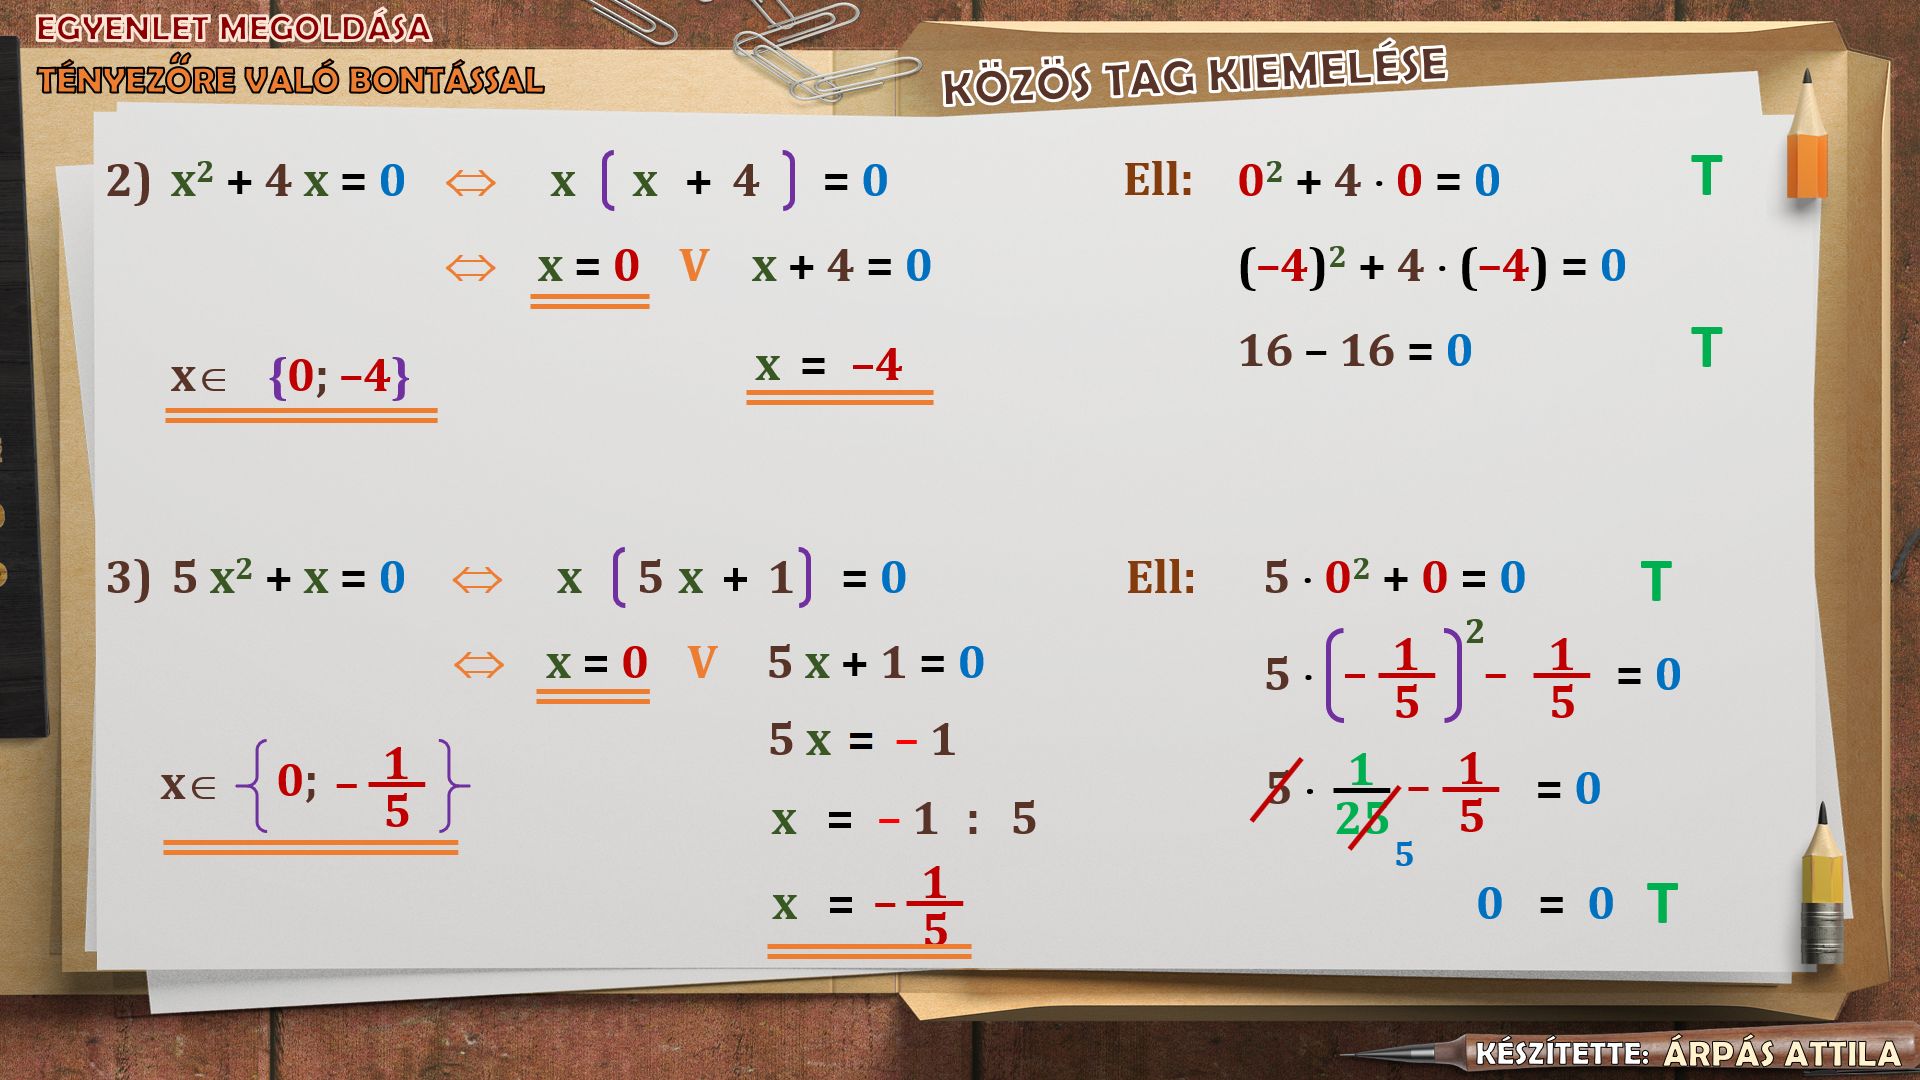 EGYENLET MEGOLDÁSA
TÉNYEZŐRE VALÓ BONTÁSSAL
KÖZÖS TAG KIEMELÉSE
2) x² + 4 x = 0 ⇔ x ( x + 4 ) = 0
⇔ x = 0 V x + 4 = 0
x = −4
x∈ {0; −4}
Ell: 0² + 4 · 0 = 0 T
(−4)² + 4 · (−4) = 0
16 − 16 = 0 T
3) 5 x² + x = 0 ⇔ x ( 5 x + 1 ) = 0
⇔ x = 0 V 5 x + 1 = 0
5 x = − 1
x = − 1 : 5
x = − 1/5
x∈ { 0; − 1/5 }
Ell: 5 · 0² + 0 = 0 T
5 · ( − 1/5 )² − 1/5 = 0
5 · 1/25 − 1/5 = 0
5
0 = 0 T
KÉSZÍTETTE: ÁRPÁS ATTILA